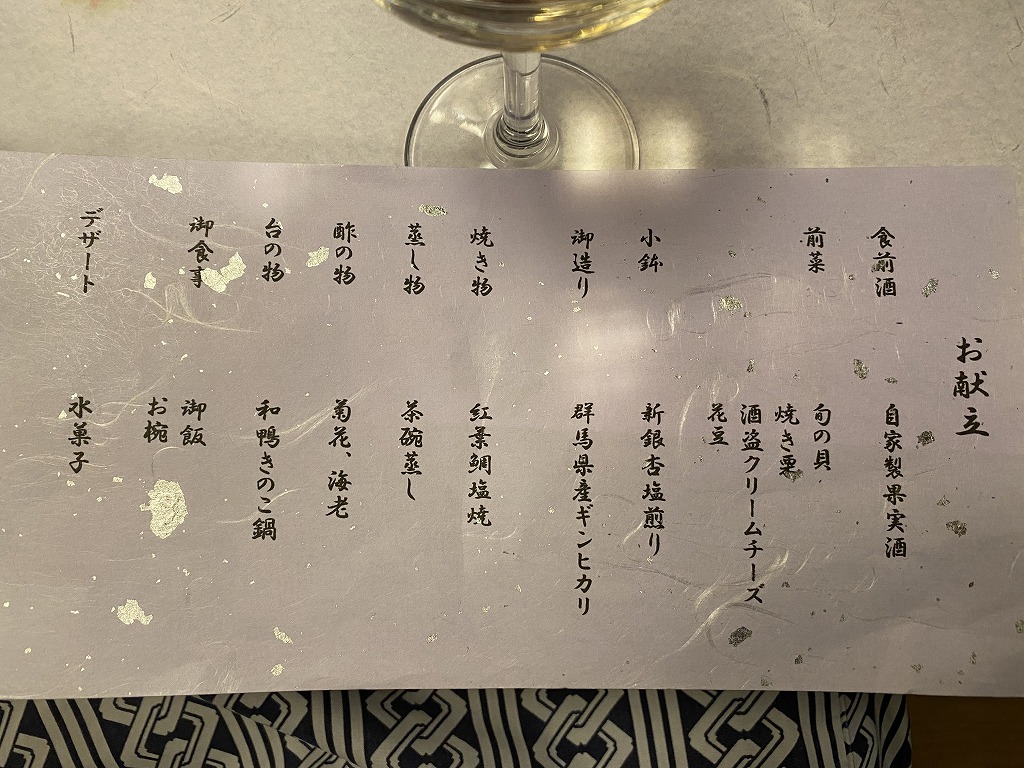 お献立
食前酒　自家製果実酒
前菜　旬の貝
焼き栗
酒盗クリームチーズ
花豆
小鉢　新銀杏塩煎り
御造り　群馬県産ギンヒカリ
焼き物　紅葉鯛塩焼
蒸し物　茶碗蒸し
酢の物　菊花、海老
台の物　和鴨きのこ鍋
御食事　御飯
お椀
デザート　水菓子